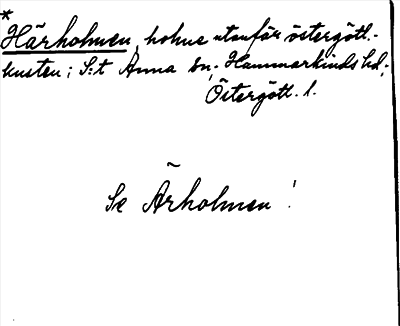 *
Härholmen, holme utanför östergötl.-
kusten; S:t Anna sn, Hammarkinds hd,
Östergötl. l.
Se Ärholmen!